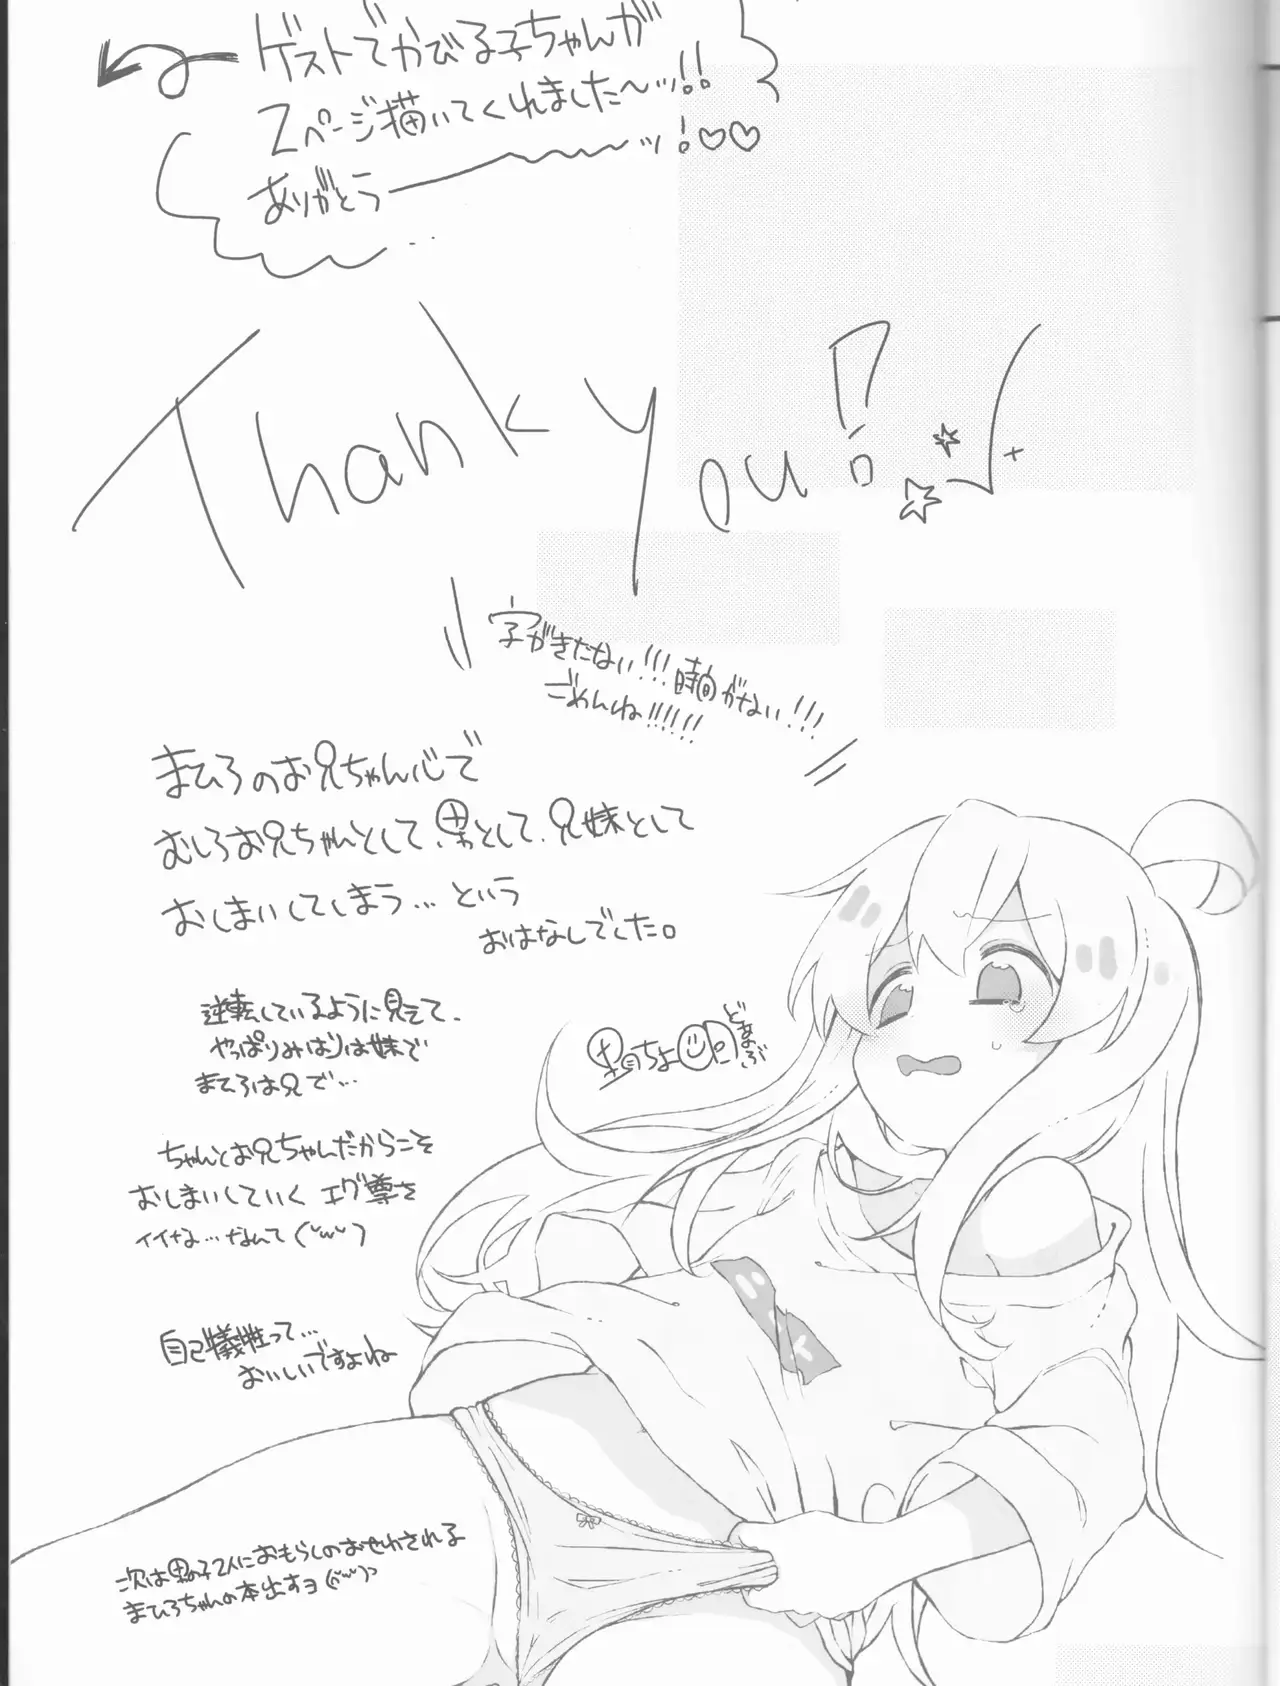 ゲストでかびる子ちゃんが
2ページ描いてくれました〜ッ!!
ありがとうーーッ!♡♡
Thank you!
字がきたない!!!時間がない!!!
ごめんね!!!!!!
まひろのお兄ちゃん心で
むしろお兄ちゃんとして、男として、兄妹として
おしまいしてしまう…という
おはなしでした。
逆転しているように見えて、
やっぱりみはりは妹で
まひろは兄で…
ちゃんとお兄ちゃんだからこそ
おしまいしていく エグ尊さ
イイナな…なんて(˘ω˘)
自己犠牲って…
おいしいですよね
次は男の子2人におもらしのお世わされる
まひろちゃんの本出すヨ(˘ω˘)